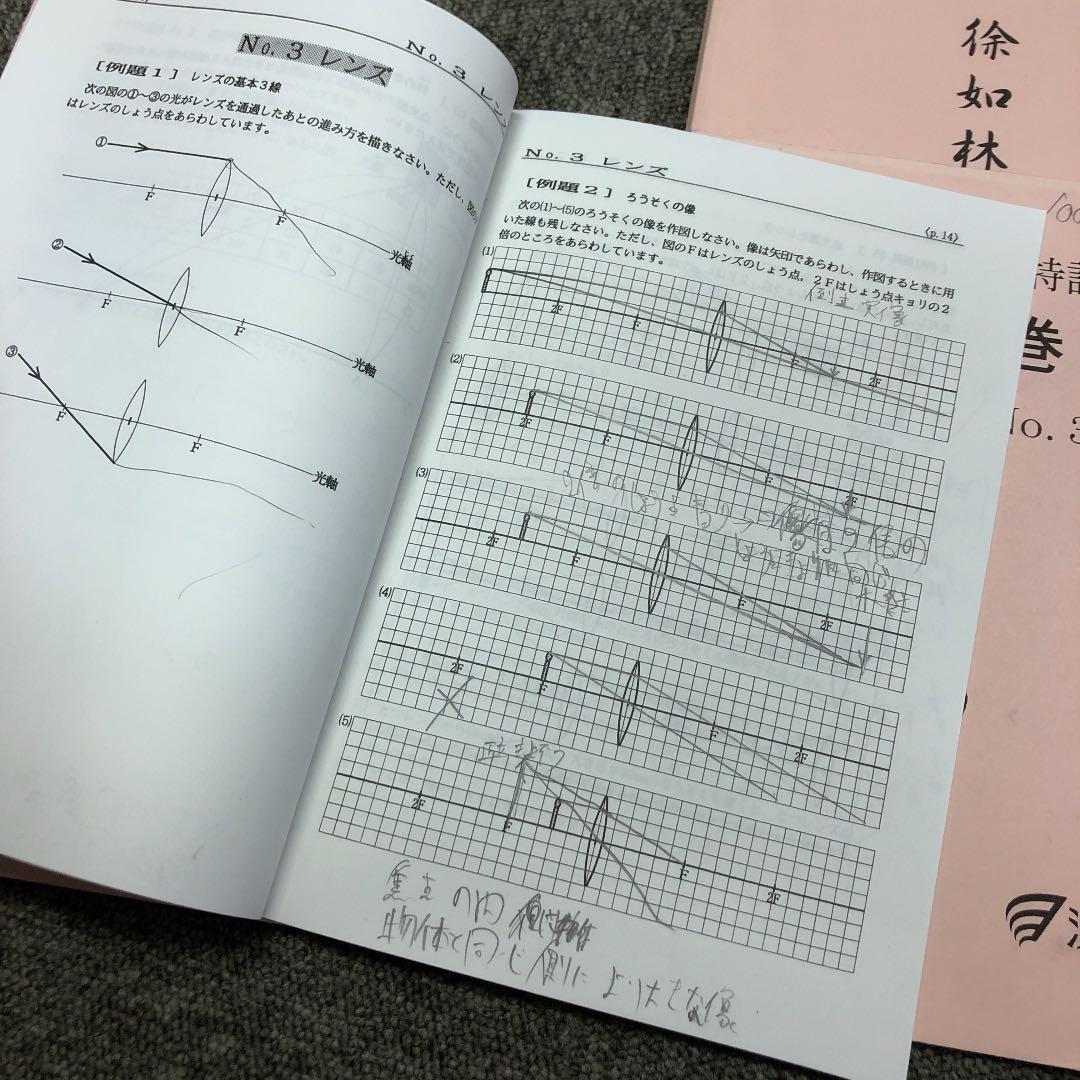 No. 3 レンズ
No. 3 レンズ
［例題１］ レンズの基本３線
次の図の①～③の光がレンズを通過したあとの進み方を描きなさい。ただし、図の
はレンズのしょう点をあらわしています。
①
F
F
光軸
②
F
F
光軸
③
F
F
光軸
No. 3 レンズ
〈p. 14〉
［例題２］ ろうそくの像
次の(1)～(5)のろうそくの像を作図しなさい。像は矢印であらわし、作図するときに用
いた線も残しなさい。ただし、図のＦはレンズのしょう点，２Ｆはしょう点キョリの２
倍のところをあらわしています。
(1)
倒立 実像
2F
F
F
2F
(2)
2F
F
F
2F
(3)
同じ
2F
F
F
2F
(4)
2F
F
F
2F
×
(5)
2F
F
F
2F
焦点の内
物体と同じ側により大きな像
徐
如
林
100
特訓
巻
No. 3